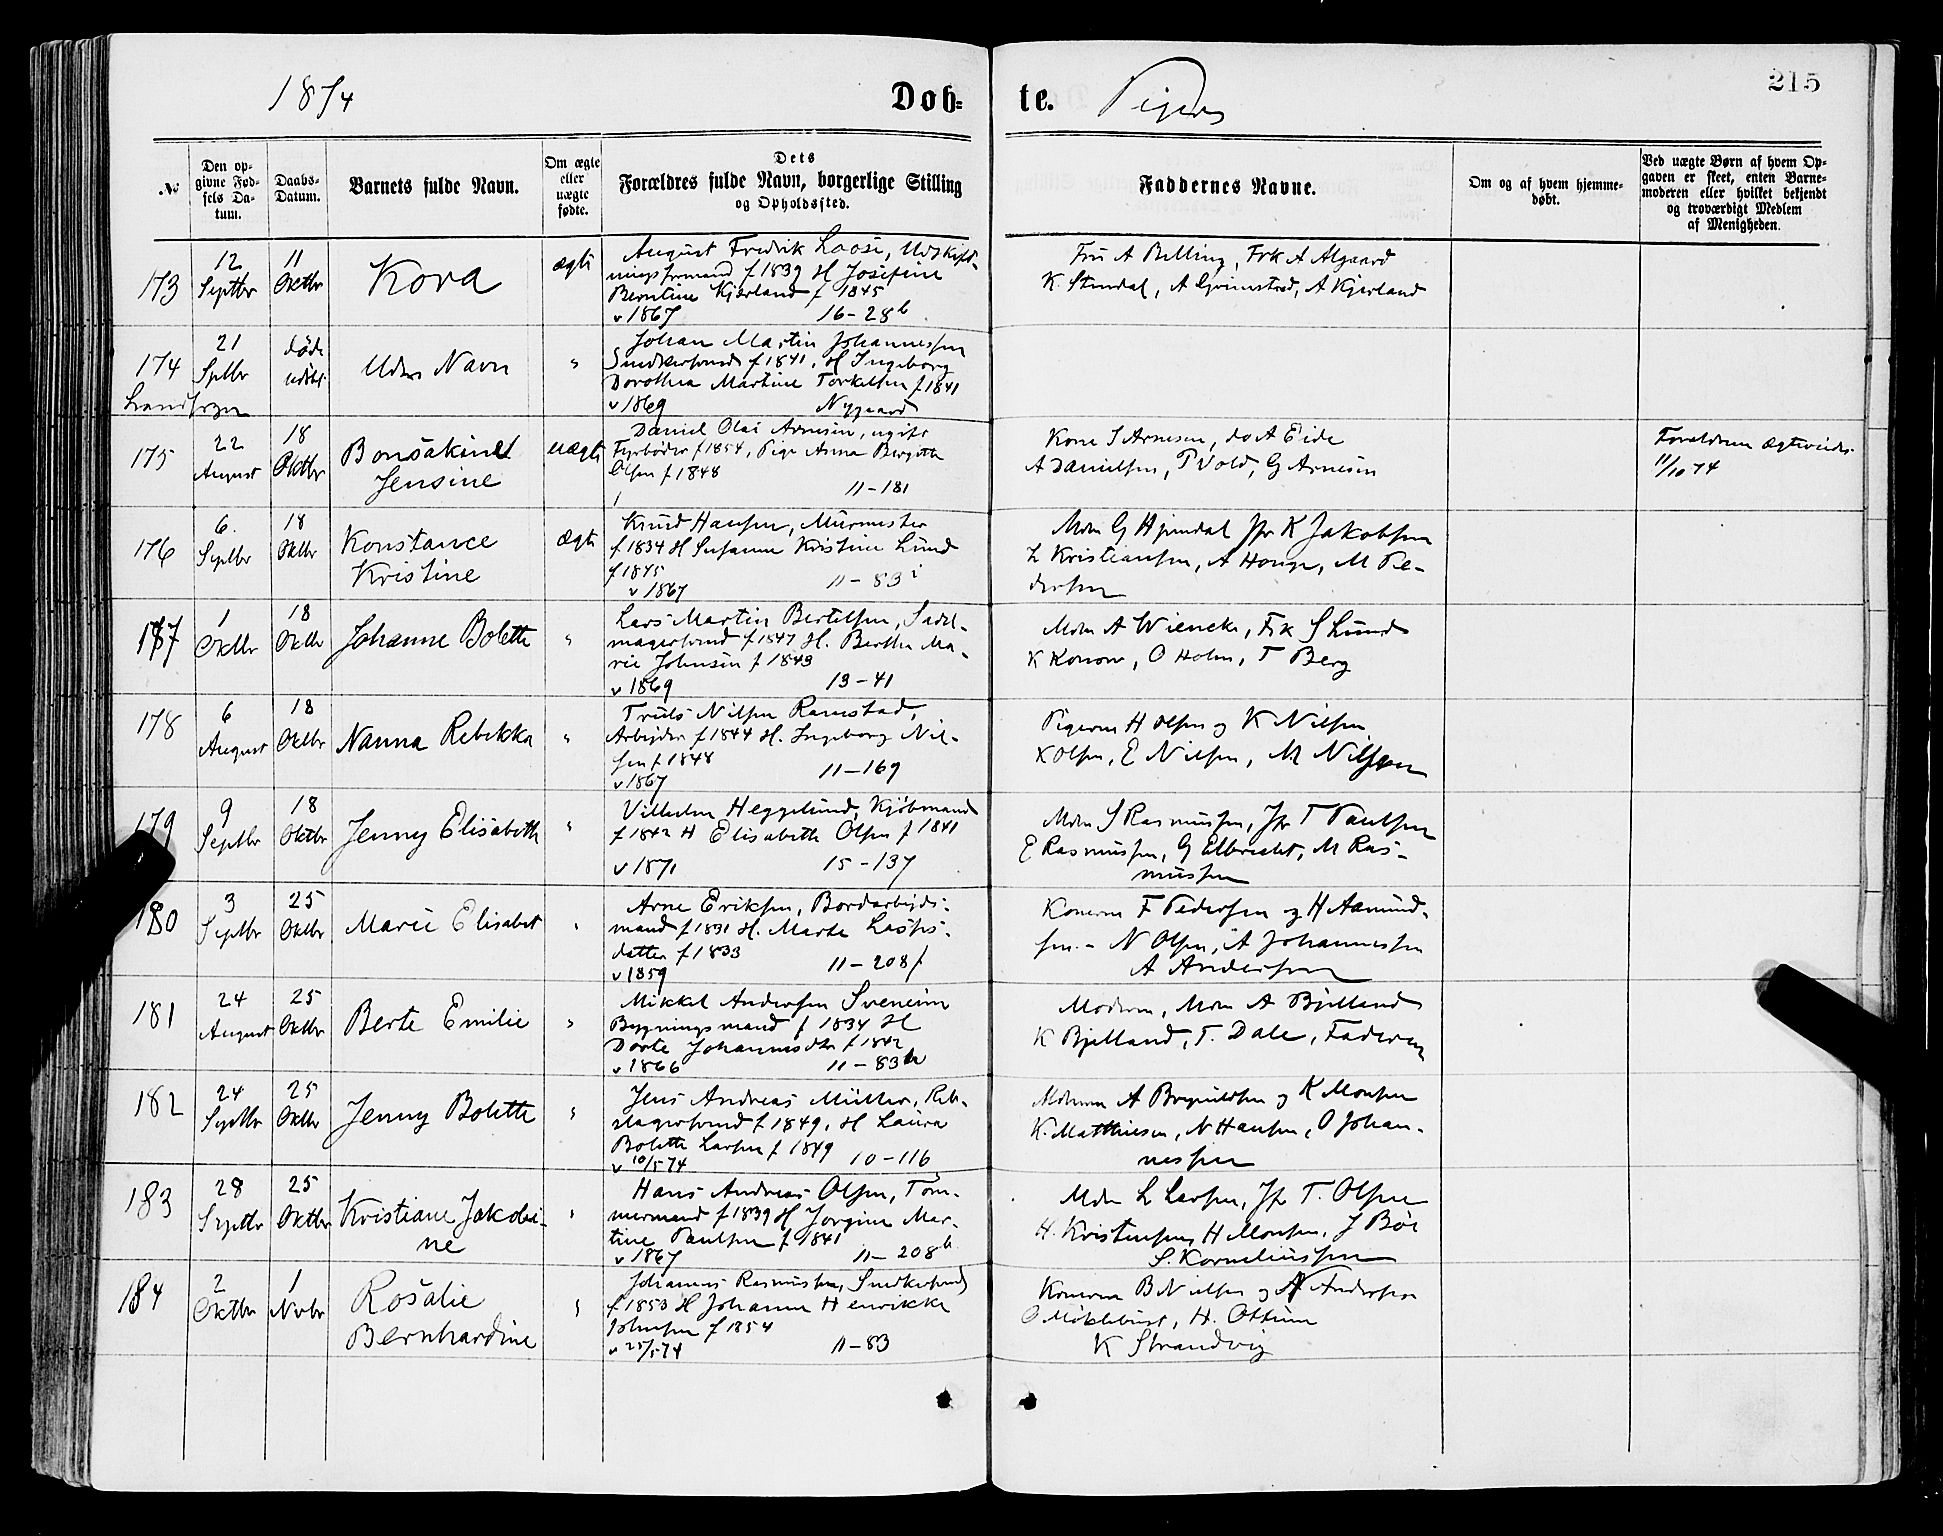 1874 Döb- te. Piger 215
№
Den op-
givne Fød-
sels Da-
tum.
Daabs-
Datum.
Barnets fulde Navn.
Om ægte
eller
uægte
fødte.
Dets
Forældres fulde Navn, borgerlige Stilling
og Opholdssted.
Faddernes Navne.
Om og af hvem hjemme-
døbt.
Ved uægte Børn af hvem Op-
gaven er skeet, enten Barne-
moderen eller hvilket bekjendt
og troværdigt Medlem
af Menigheden.
173
12
Septbr
11
Oktbr
Kora
ægte
August Fredrik Loose, Udskift-
ningsformand f 1839 H Josefine
Berntine Kjerland f 1845
v 1867 16-28b
Fru A Belling, Frk A Algaard
K. Stendal, A Grimstad, A Kjerland
174
Landsogn
21
Sptbr
død
udøbt
Uden Navn
"
Johan Martin Johannessen
Snedkersvend f 1841, H Ingeborg
Dorothea Martine Torkelsen f 1841
v 1869 Nygaard
175
22
August
18
Oktbr
Jensine
uægte
Daniel Olai Arnesen, ugift
Fyrbøder f 1854, Pige Anna Birgitte
Olsen f 1848
11-181
Kone S Arnesen, do A Eide
A Danielsen, P Vold, G Arnesen
Forældrene ægteviedes
11/10 74
176
6.
Septbr
18
Oktbr
Konstance
Kristine
ægte
Knud Hansen, Murmester
f 1834 H Susanne Kristine Lund
f 1845
v 1867 11-83i
Mdm G Hjemdal Jfr K Jakobsen
L Kristiansen, A Hauge, M Pe-
dersen
177
1
Oktbr
18
Oktbr
Johanne Bolette
"
Lars Martin Bertelsen, Sadel-
magersvend f 1847 H. Berthe Ma-
rie Johnsen f 1843
v 1869 13-41
Mdm A Wiencke, Frk S Lund
K Konow, O Holm, T Berg
178
6
August
18
Oktbr
Nanna Rebekka
"
Truls Nilsen Ramstad,
Arbeider f 1844 H. Ingeborg Nil-
sen f 1848
v 1867 11-169
Pigerne H Olsen og K Nilsen
K Olsen, E Nilsen, M Nilsen
179
9
Septbr
18
Oktbr
Jenny Elisabeth
"
Vilhelm Heggelund, Kjøbmand
f 1842 H Elisabeth Olsen f 1841
v 1871 15-137
Mdm S Rasmussen, Jfr T Paulsen
E Rasmussen, G Elbrecht, M Ras-
mussen
180
3
Septbr
25
Oktbr
Marie Elisabet
"
Arne Eriksen, Bordarbeids-
mand f 1831 H. Marta Lasses-
datter f 1833
v 1859 11-208f
Konerne F Pedersen og H Aamund-
sen - N Olsen, A Johannessen
A Andersen
181
24
August
25
Oktbr
Berte Emilie
"
Mikkel Andersen Sveneim
Bygningsmand f 1834 H
Dorte Johannesdtr f 1842
v 1866 11-83
Moderen, Mdm A Bjelland
K Bjelland, T. Dale, Faderen
182
24
Septbr
25
Oktbr
Jenny Bolette
"
Jens Andreas Müller, Reb-
slagersvend f 1849, H Laura
Bolette Larsen f 1849
v 10/5 74 10-116
A Brynildsen og K Monsen
K. Matthiesen, N Hansen, O Johan-
nessen
183
28
Septbr
25
Oktbr
Kristiane Jakobi-
ne
"
Hans Andreas Olsen, Tøm-
mermand f 1839 H Jorgine Mar-
tine Paulsen f 1841
v 1867 11-208b
Mdm L Larsen, Jfr T. Olsen
H. Kristensen, H Monsen, J Bøe
S. Korneliussen
184
2
Oktbr
1
Novbr
Rosalie
Bernhardine
"
Johannes Rasmussen, Snedkersvend
f 1853 H Johanne Henrikke
Johnsen f 1854
v 25/5 74 11-83
Konerne B Nielsen og N Andersen
O Møklebust, H. Ottum
K Strandvig